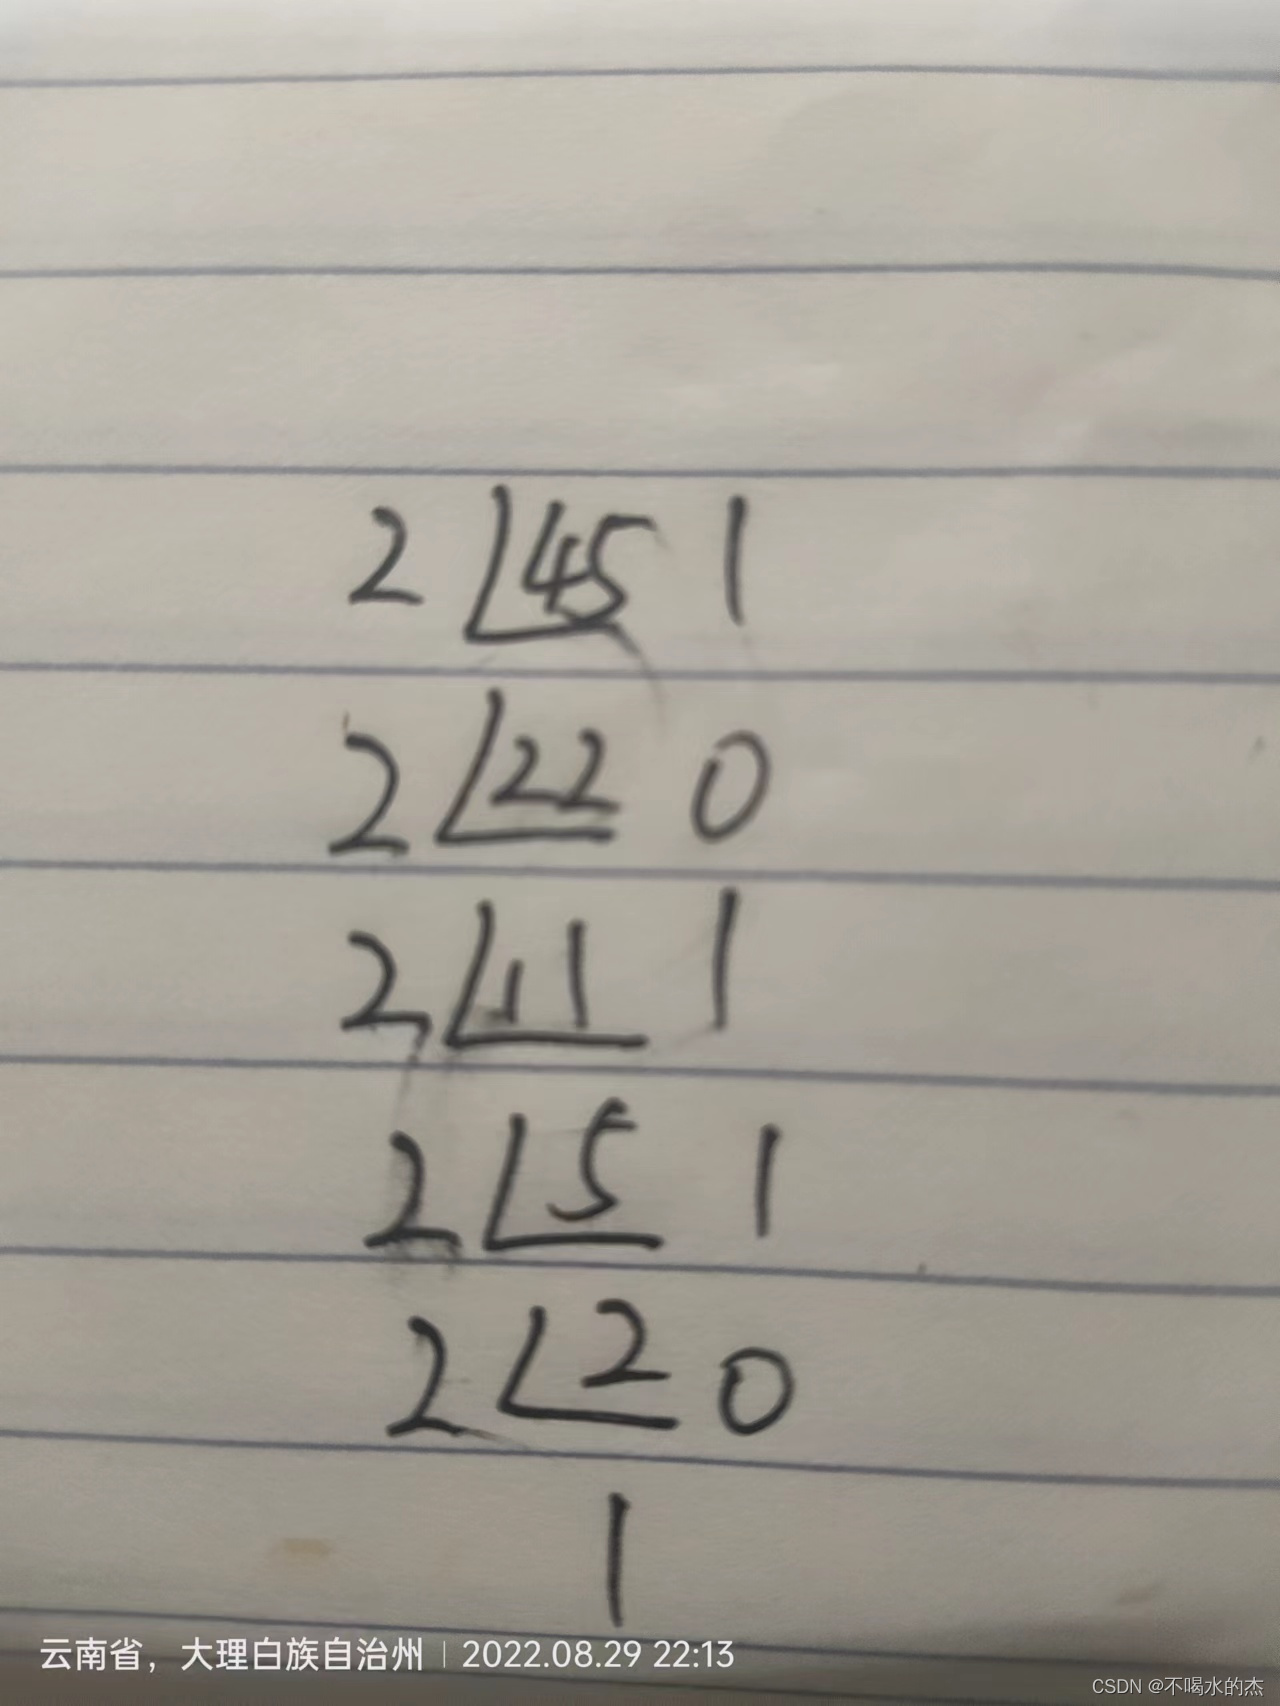 2 45 1
2 22 0
2 11 1
2 5 1
2 2 0
1
云南省，大理白族自治州 | 2022.08.29 22:13
CSDN @不喝水的杰